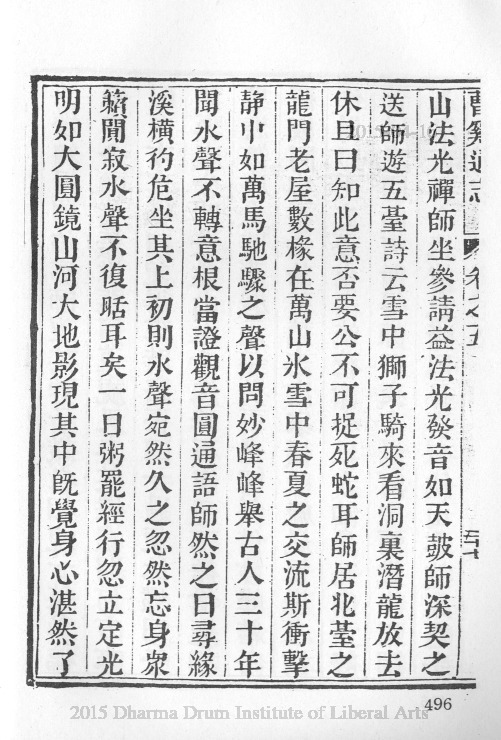 曹溪通志 卷之五
山法光禪師坐參請益法光發音如天皷師深契之
送師遊五臺詩云雪中獅子騎來看洞裏潛龍放去
休且曰知此意否要公不可捉死蛇耳師居北臺之
龍門老屋數椽在萬山氷雪中春夏之交流澌衝擊
静中如萬馬馳驟之聲以問妙峰峰舉古人三十年
聞水聲不轉意根當證觀音圓通語師然之日尋緣
溪橫彴危坐其上初則水聲宛然久之忽然忘身衆
籟闃寂水聲不復聒耳矣一日粥罷經行忽立定光
明如大圓鏡山河大地影現其中旣覺身心湛然了
496
2015 Dharma Drum Institute of Liberal Arts